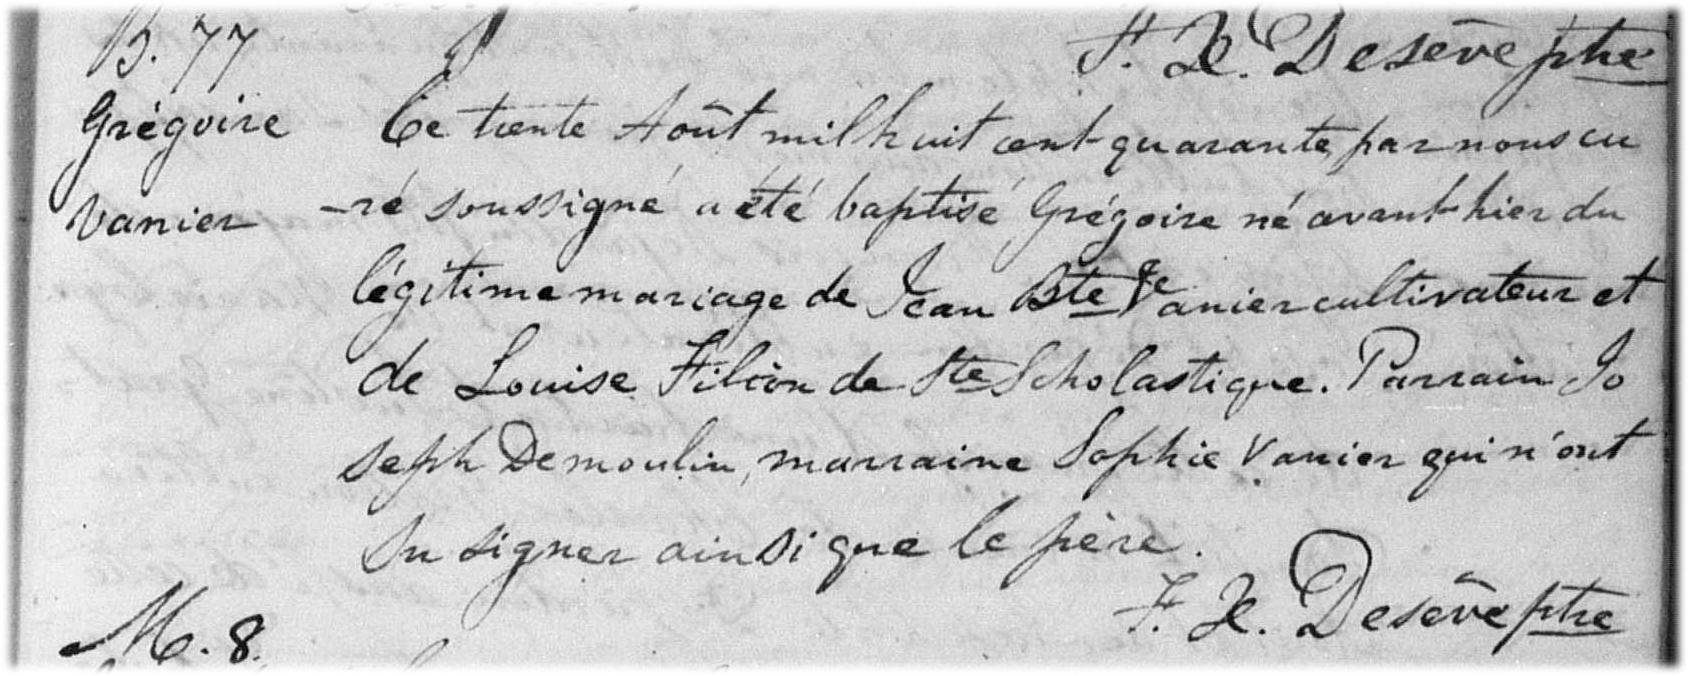 B. 77
F. X. Desève ptre
Grégoire
Vanier
Ce trente Août mil huit cent quarante, par nous cu
-ré soussigné a été baptisé Grégoire né avant-hier du
légitime mariage de Jean Bte Vanier cultivateur et
de Louise Filion de Ste Scholastique. Parrain Jo
seph Demoulin, marraine Sophie Vanier qui n'ont
su signer ainsi que le père.
F. X. Desève ptre
M. 8.